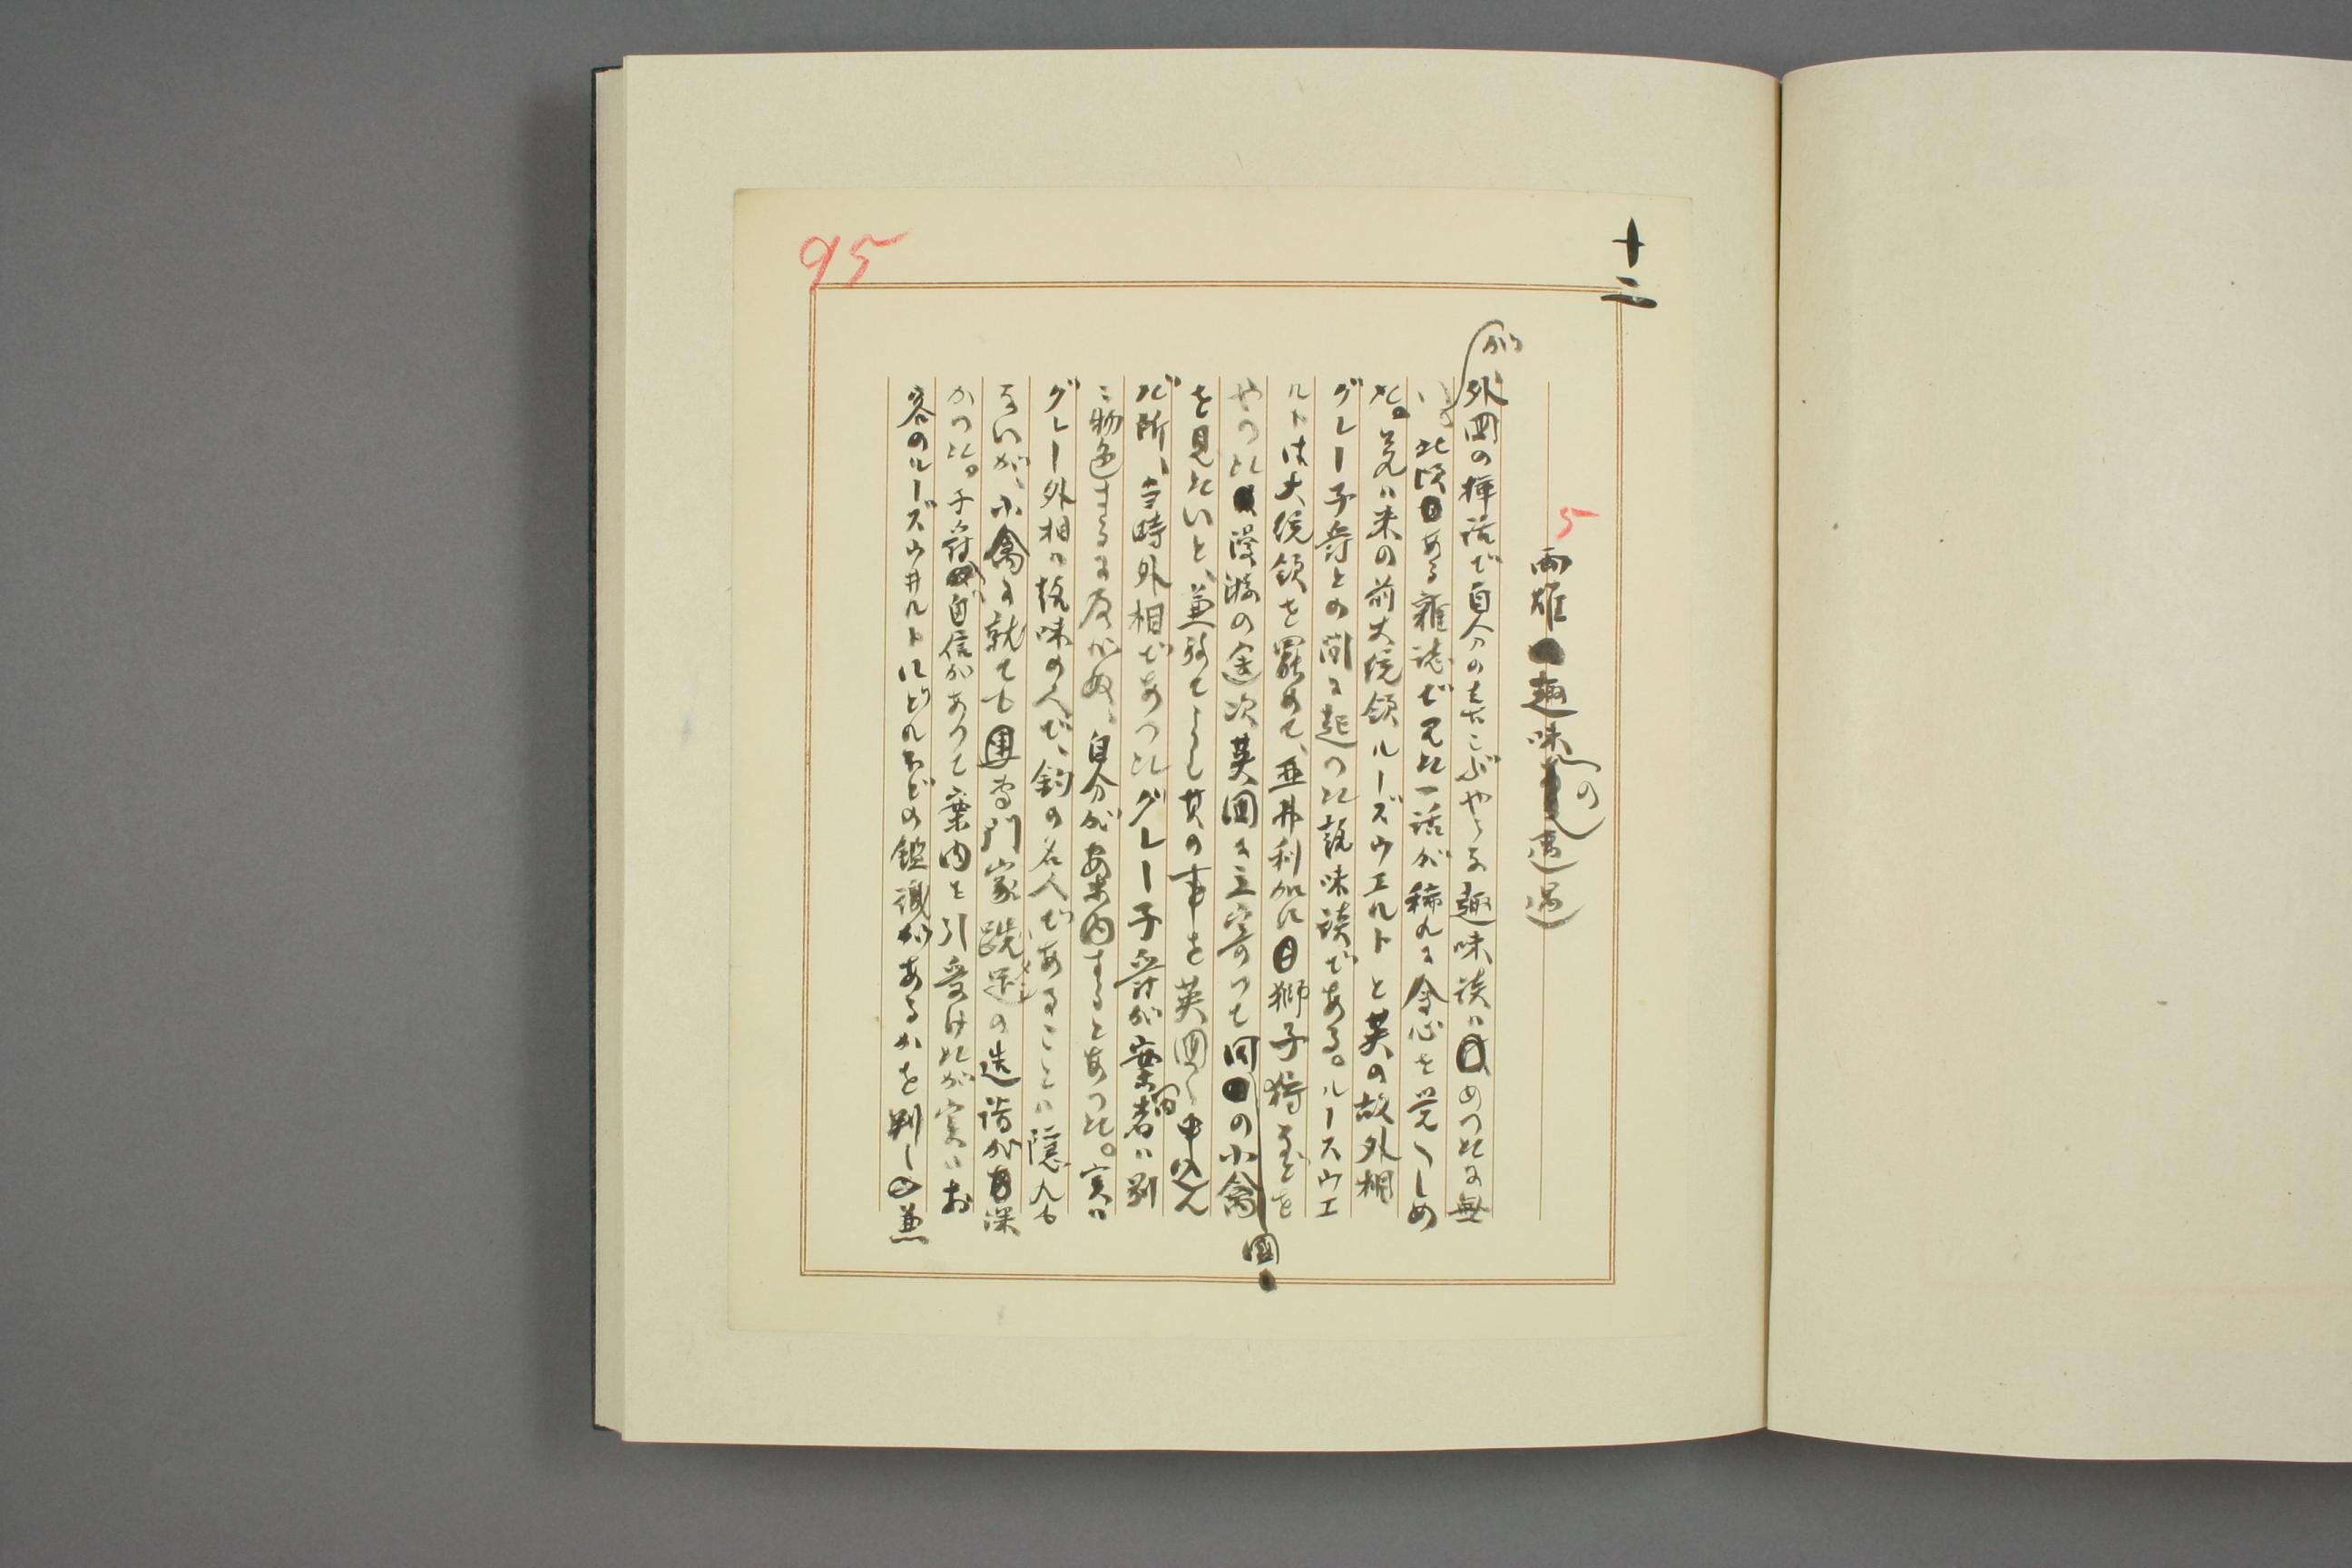 十二
95
5
両雄趣味の遭遇
外国の挿話で自分のよろこぶやうな趣味談はめつたに無
いが此頃ある雑誌で見た一話が稀れに会心を覚へしめ
た。其れは米の前大統領ルーズウエルトと英の故外相
グレー子爵との間に起つた趣味談である。ルースウエ
ルトは大統領を罷めて、亜弗利加に獅子狩などを
やつた漫遊の途次英国に立寄つて同国の小禽
を見たいと、兼ねてよりし其の事を英国へ申込ん
だ所、当時外相であつたグレー子爵が案内者は別
に物色するに及ばぬ、自分が案内するとあつた。実は
グレー外相は趣味の人で、釣の名人であることは隠れも
ないが、小禽に就ても専門家跣足の造詣が深
かつた。子爵自信があつて案内を引受けたが実はお
客のルーズウヰルトにどれほどの鑑識があるかを判し兼